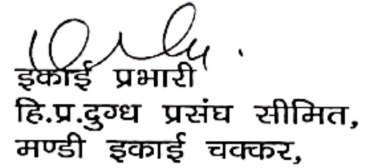 इकाई प्रभारी
हि.प्र.दुग्ध प्रसंघ सीमित,
मण्डी इकाई चक्कर,